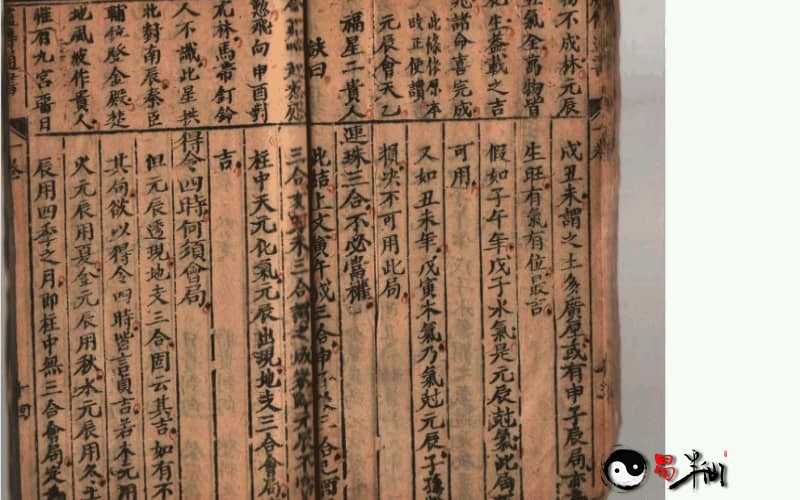 物不成林元辰
氣全萬物皆
生蓋載之吉
諸命喜完成
此條係原本
改正便讀
元辰會天乙
福星二貴人
訣曰
飛向申酉對
林馬帝釘鈴
人不識此星拱
北對南辰秦臣
輔位登金殿
地風波作貴人
惟有九宮番日
戊丑未謂之土多廣厚或有申子辰局亦
生旺有氣有位最吉
假如子午年戊子水氣是元辰尅氣此局
可用
又如丑未年戊寅木氣乃氣尅元辰子孫
損决不可用此局
連珠三合不必當權
此結上文寅午戌三合申三合巳酉
三合亥未三合謂之成元辰不
柱中天元化氣元辰出現地支三合會局
吉
得令四時何須會局
但元辰透現地支三合固云其吉如有不
其局欲以得令四時皆言貞吉若木元用
火元辰用夏金元辰用秋水元辰用冬土
辰用四季之月即柱中無三合會局定
易半仙